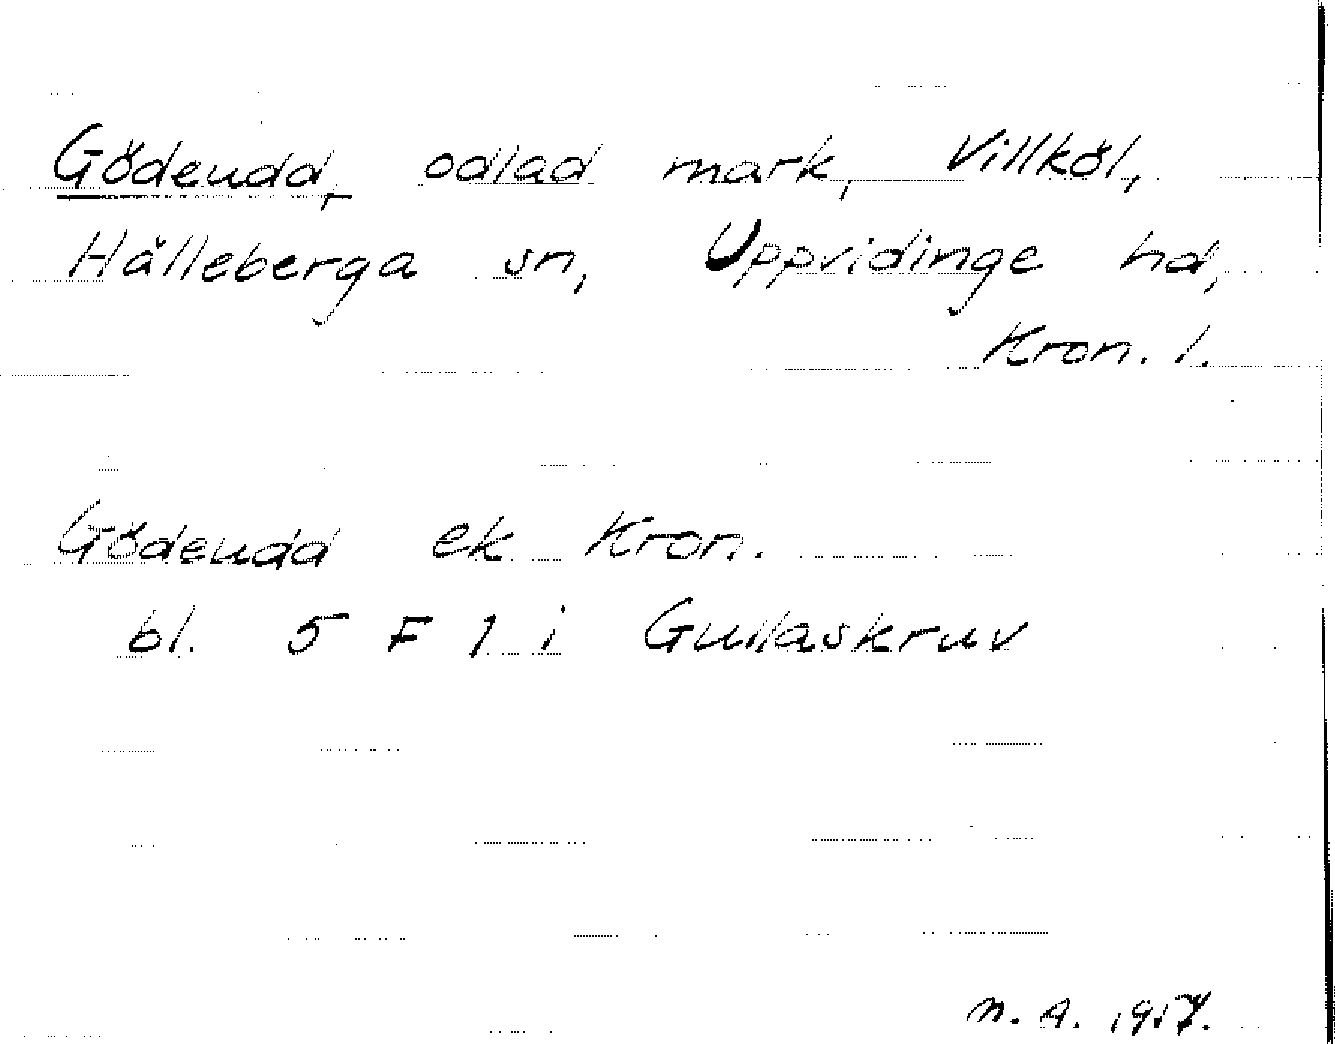 Gödeudd, odlad mark, Villköl,
Hälleberga sn, Uppvidinge hd,
Kron. l.
Gödeudd ek Kron.
bl. 5 F 1 i Gullaskruv
N. A. 1957.